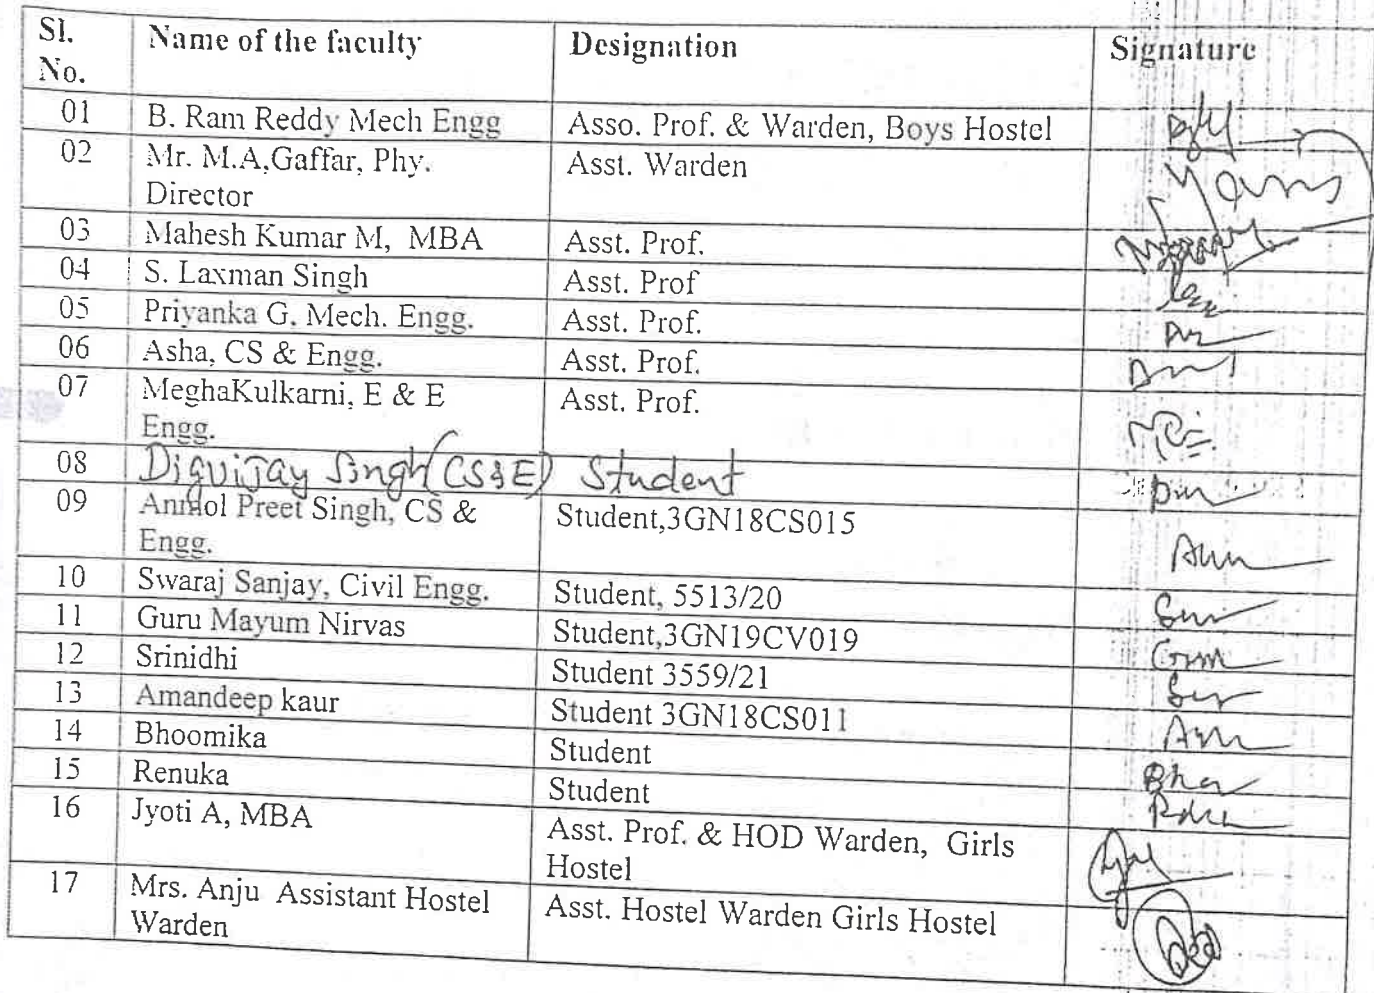 Sl. No. Name of the faculty Designation Signature
01 B. Ram Reddy Mech Engg Asso. Prof. & Warden, Boys Hostel
02 Mr. M.A,Gaffar, Phy. Director Asst. Warden
03 Mahesh Kumar M, MBA Asst. Prof.
04 S. Laxman Singh Asst. Prof
05 Priyanka G. Mech. Engg. Asst. Prof.
06 Asha, CS & Engg. Asst. Prof.
07 MeghaKulkarni, E & E Engg. Asst. Prof.
08 Diguijay Singh (CS&E) Student
09 Anmol Preet Singh, CS & Engg. Student,3GN18CS015
10 Swaraj Sanjay, Civil Engg. Student, 5513/20
11 Guru Mayum Nirvas Student,3GN19CV019
12 Srinidhi Student 3559/21
13 Amandeep kaur Student 3GN18CS011
14 Bhoomika Student
15 Renuka Student
16 Jyoti A, MBA Asst. Prof. & HOD Warden, Girls Hostel
17 Mrs. Anju Assistant Hostel Warden Asst. Hostel Warden Girls Hostel